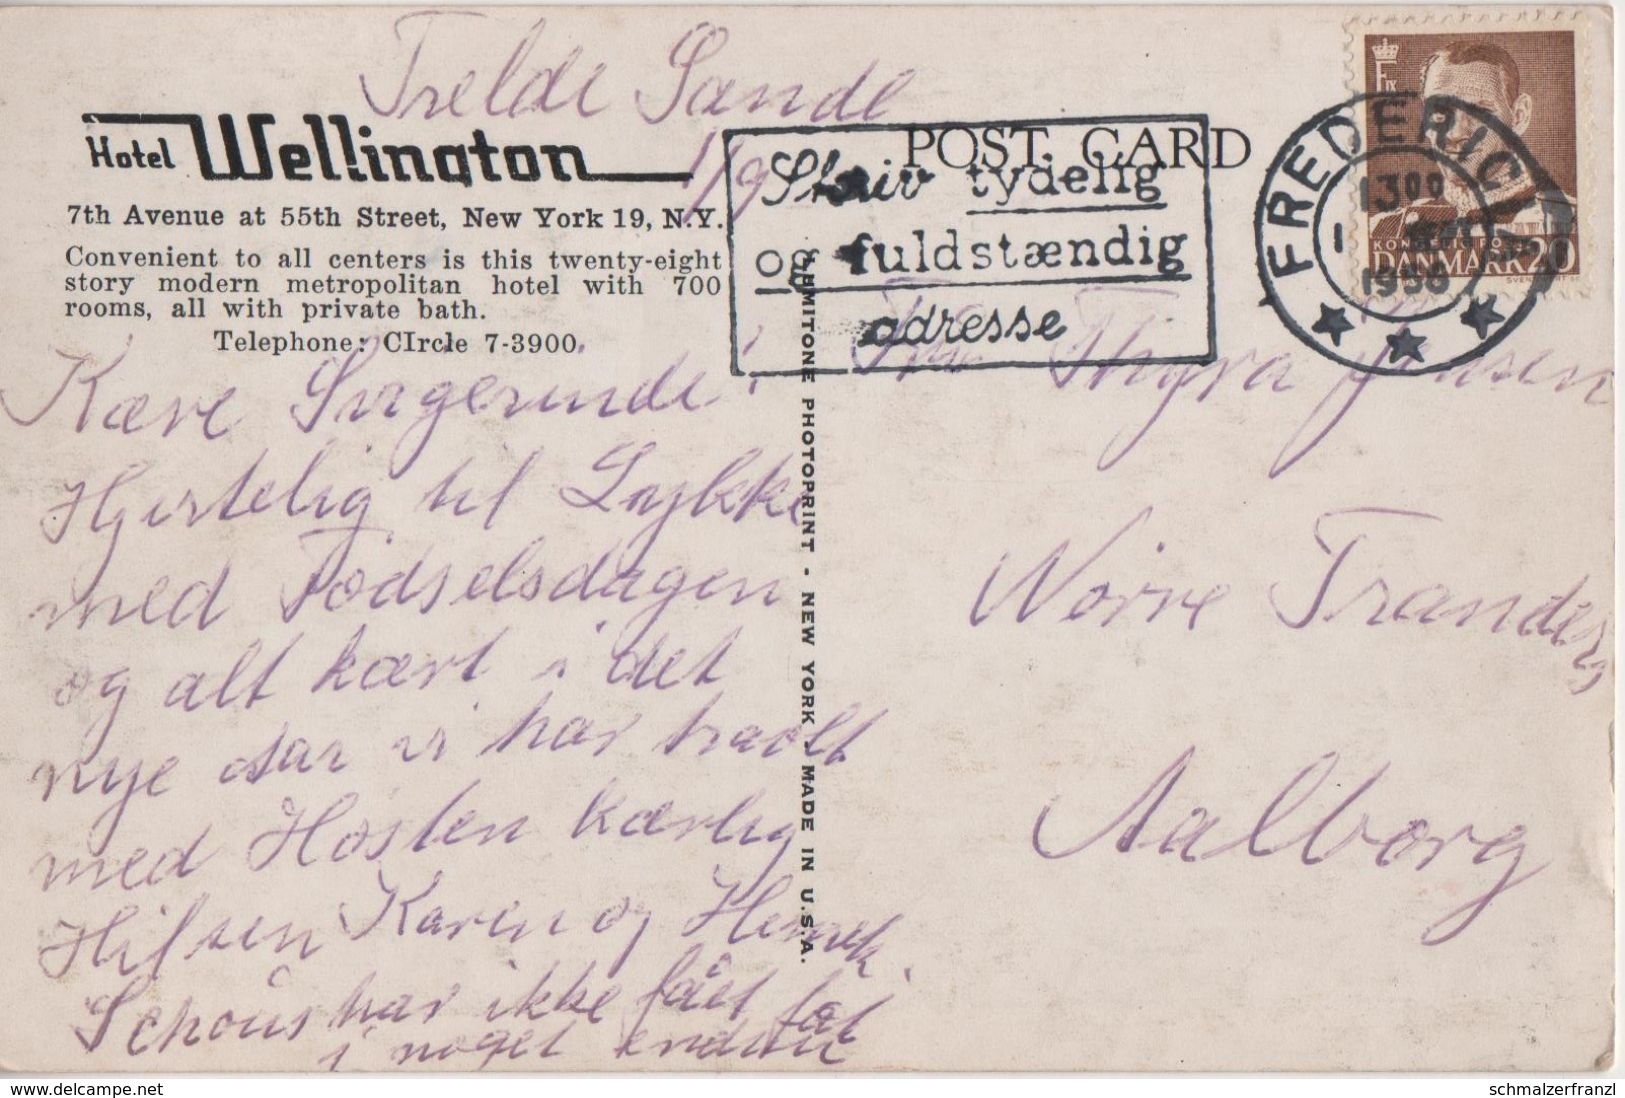 Trelde Sande
1/9
Hotel Wellington
7th Avenue at 55th Street, New York 19, N.Y.
Convenient to all centers is this twenty-eight
story modern metropolitan hotel with 700
rooms, all with private bath.
Telephone: CIrcle 7-3900
Kære Svigerinde!
Hjertelig til Lykke
med Fødselsdagen
og alt kært i det
nye Aar vi har traølt
med Høsten kærlig
Hilsen Karen og Henrik.
Schous har ikke fået fat
i noget endnu
LUMITONE PHOTOPRINT - NEW YORK - MADE IN U.S.A.
POST CARD
Skriv tydelig
og fuldstændig
adresse
FREDERICIA
13 00
1956
F IX
KONGELIG POST
DANMARK 20
Fru Thyra Jensen
Nørre Tranders
Aalborg
www.delcampe.net
schmalzerfranzl